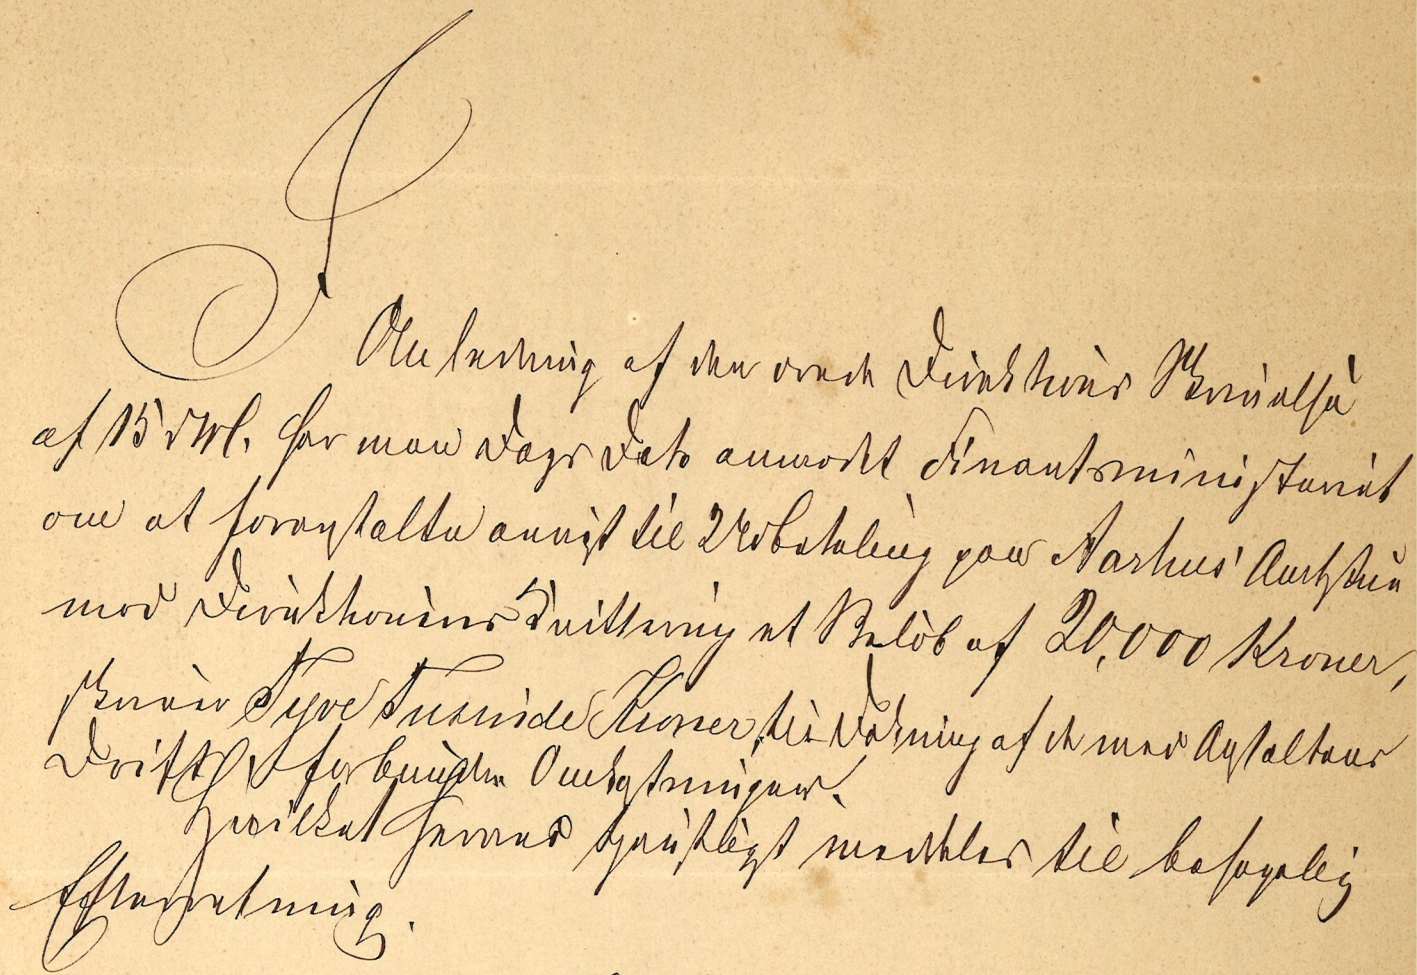 I
Anledning af den ærede Direktions Skrivelse
af 15 d. M. har man Dags Dato anmodet Finantsministeriet
om at foranstalte anvist til Udbetaling paa Aarhus Amtstue
mod Direktionens Kvittering et Beløb af 20,000 Kroner,
skriver Tyve Tusinde Kroner, til Dækning af de med Anstaltens
Drift forbundne Omkostninger.
Hvilket herved tjenstligst meddeles til behagelig
Efterretning.